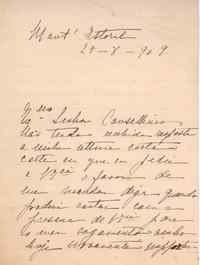 Mont' Estoril
24-8-909
Senhor Conselheiro
Não tendo recebido resposta
a minha ultima carta
carta em que eu pedia
a V Exª o favor de
me mandar dizer quando
poderia contar com a
presença de V Exª para
o meu casamento venho
hoje novamente